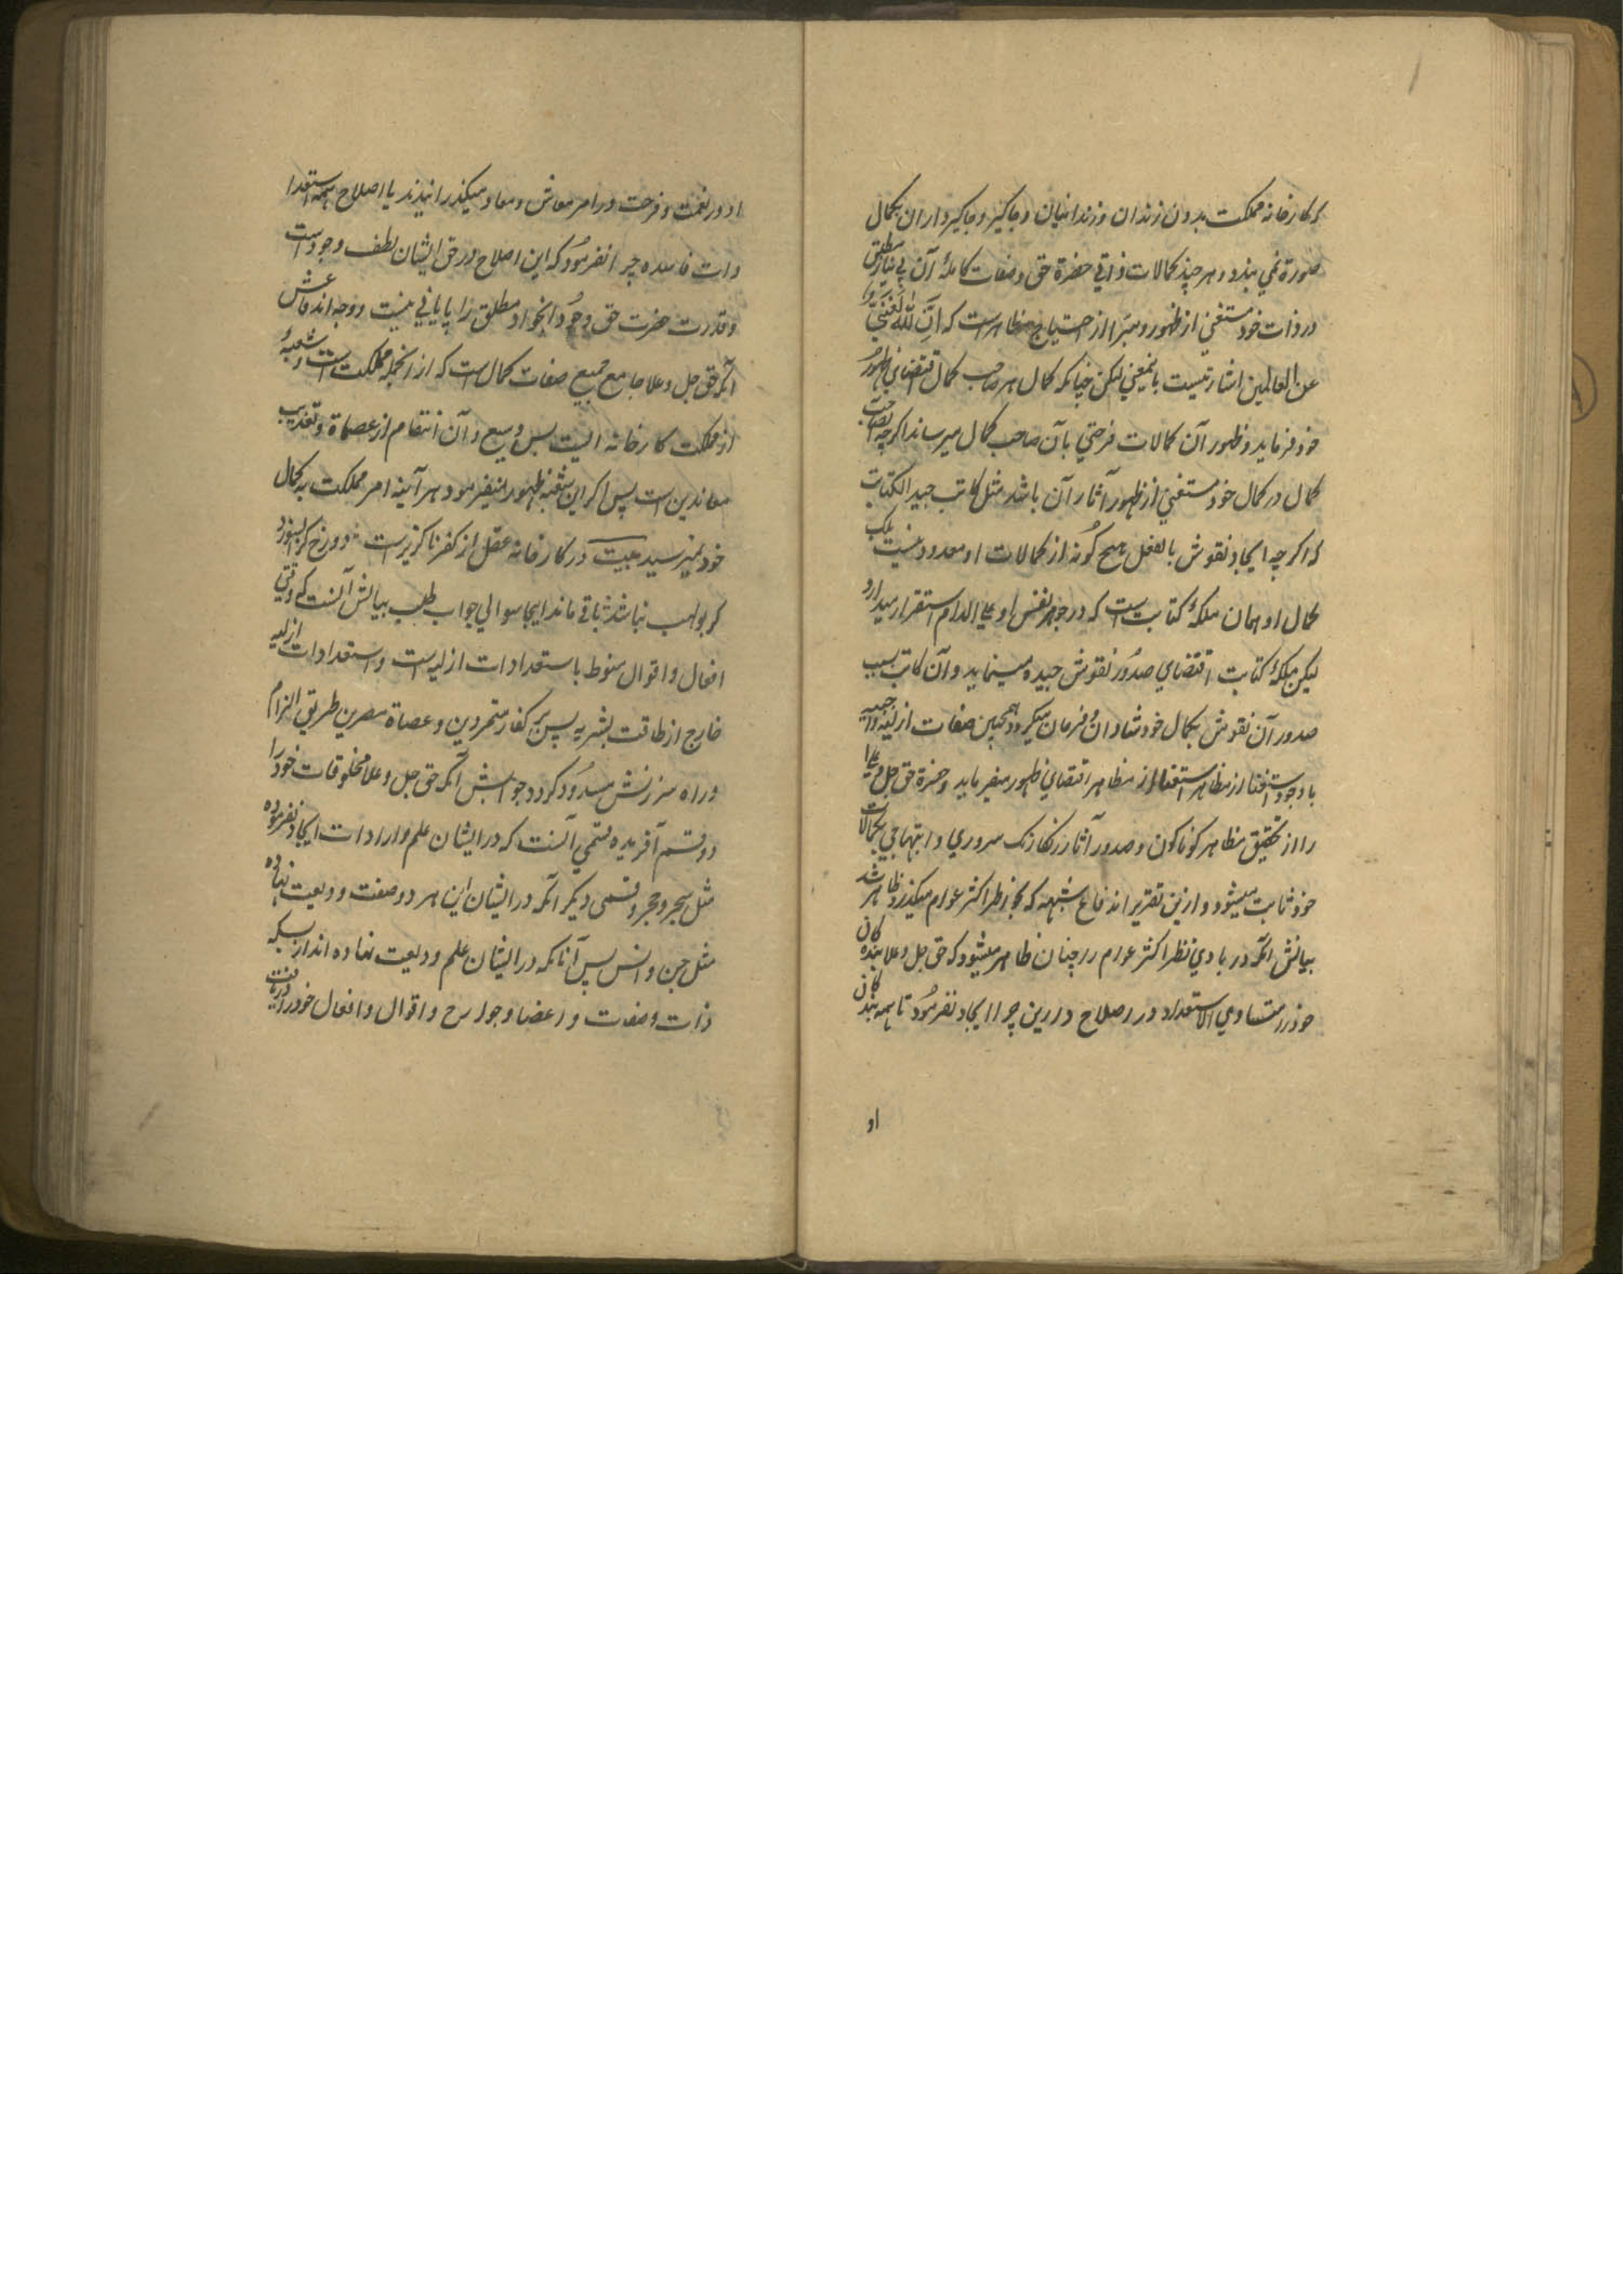 که کارخانه مملکت بدون زندان و زندانیان و جاکیر و جاکیرداران بکمال
صورة نمی بندد و هر چند کمالات ذاتی حضرة حق و صفات کامله آن بی نیاز مطلق
در ذات خود مستغنی از ظهور و مبرا از احتیاج مظاهر است که اِنَّ اللهَ لَغَنِیٌّ
عن العالمین اشارتیست باینمعنی لیکن چنانکه کمال هر صاحب کمال اقتضای ظهور
خود فرماید و ظهور آن کمالات فرحتی بآن صاحب کمال میرساند اکرچه صاحب
کمال در کمال خود مستغنی از ظهور آثار آن باشد مثل کاتب جید الکتابت
که اکرچه ایجاد نقوش بالفعل هیچ کُونه از کمالات او معدود نیست بلکه
کمال او همان ملکهٔ کتابت است که در جوهر نفس او علی الدوام استقرار میدارد
لیکن ملکهٔ کتابت اقتضای صدُور نقوش جیده مینماید و آن کاتب بسبب
صدور آن نقوش بکمال خود شادان و فرحان میکردد همچنین صفات ازلیه واجبیه
با وجود استغنا از مظاهر اقتضای ظهور میفرماید و حضرة حق جل و علا
را از تحقیق مظاهر کوناکون و صدور آثار رنکارنک سروری و ابتهاجی بکمالات
خود ثابت میشود و ازین تقریر اندفاع شبهه که بخاطر اکثر عوام میکذرد ظاهر شد
بیانش آنکه در بادی نظر اکثر عوام را چنان ظاهر میشود که حق جل و علا بنده کان
خود را متساوی الاستعداد در اصلاح دارین چرا ایجاد نفرمُود تا همه بند کان
او
او در نعمت و فرحت در امر معاش و معاد میکذرانیدند یا اصلاح همه استعدا
دات فاسده چرا نفرمُود که این اصلاح در حق ایشان لطف و جود است
و قدرت حضرت حق و جُود آنجواد مطلق را پایانی نیست و وجه اندفاعش
آنکه حق جل و علا جامع جمیع صفات کمال است که از انجمله مملکت است و شعبهٔ
از مملکت کارخانه ایست بس وسیع و آن انتقام از عصاة و تعذیب
معاندین است پس اکر این شعبه ظهور نمیفرمود هر آینه امر مملکت به کمال
خود نمیرسید بیت در کارخانه عقل از کفر ناکزیر است دوزخ کرا بسوزد
کر بولهب نباشد باقی ماند اینجا سوالی جواب طلب بیانش آنست که وقتی
افعال و اقوال منوط باستعدادات ازلیه است و استعدادات ازلیه
خارج از طاقت بشریه پس بر کفار متمردین و عصاة مصرین طریق الزام
و راه سرزنش مسدُود کردد جوابش آنکه حق جل و علا مخلوقات خود را
دو قسم آفریده قسمی آنست که در ایشان علم و ارادات ایجاد نفرموده
مثل شجر و حجر و قسمی دیکر آنکه در ایشان این هر دو صفت ودیعت نهاده
مثل جن و انس پس آنانکه در ایشان علم ودیعت نهاده اند از بسکه
ذات و صفات و اعضا و جوارح و اقوال و افعال خود را